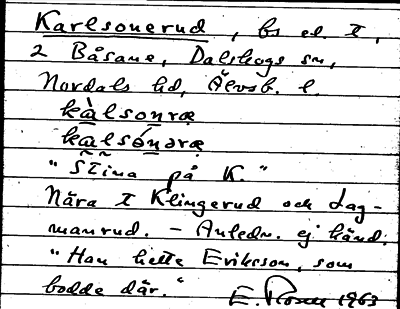 Karlsonerud, bs el. t,
2 Båsane, Dalskogs sn,
Nordals hd, Älvsb. l.
kàlsonræ
kalsónəræ
"Stina på K."
Nära t Klingerud och Lag-
manrud. – Anledn. ej känd.
"Han hette Eriksson, som
bodde där."
E. 1963